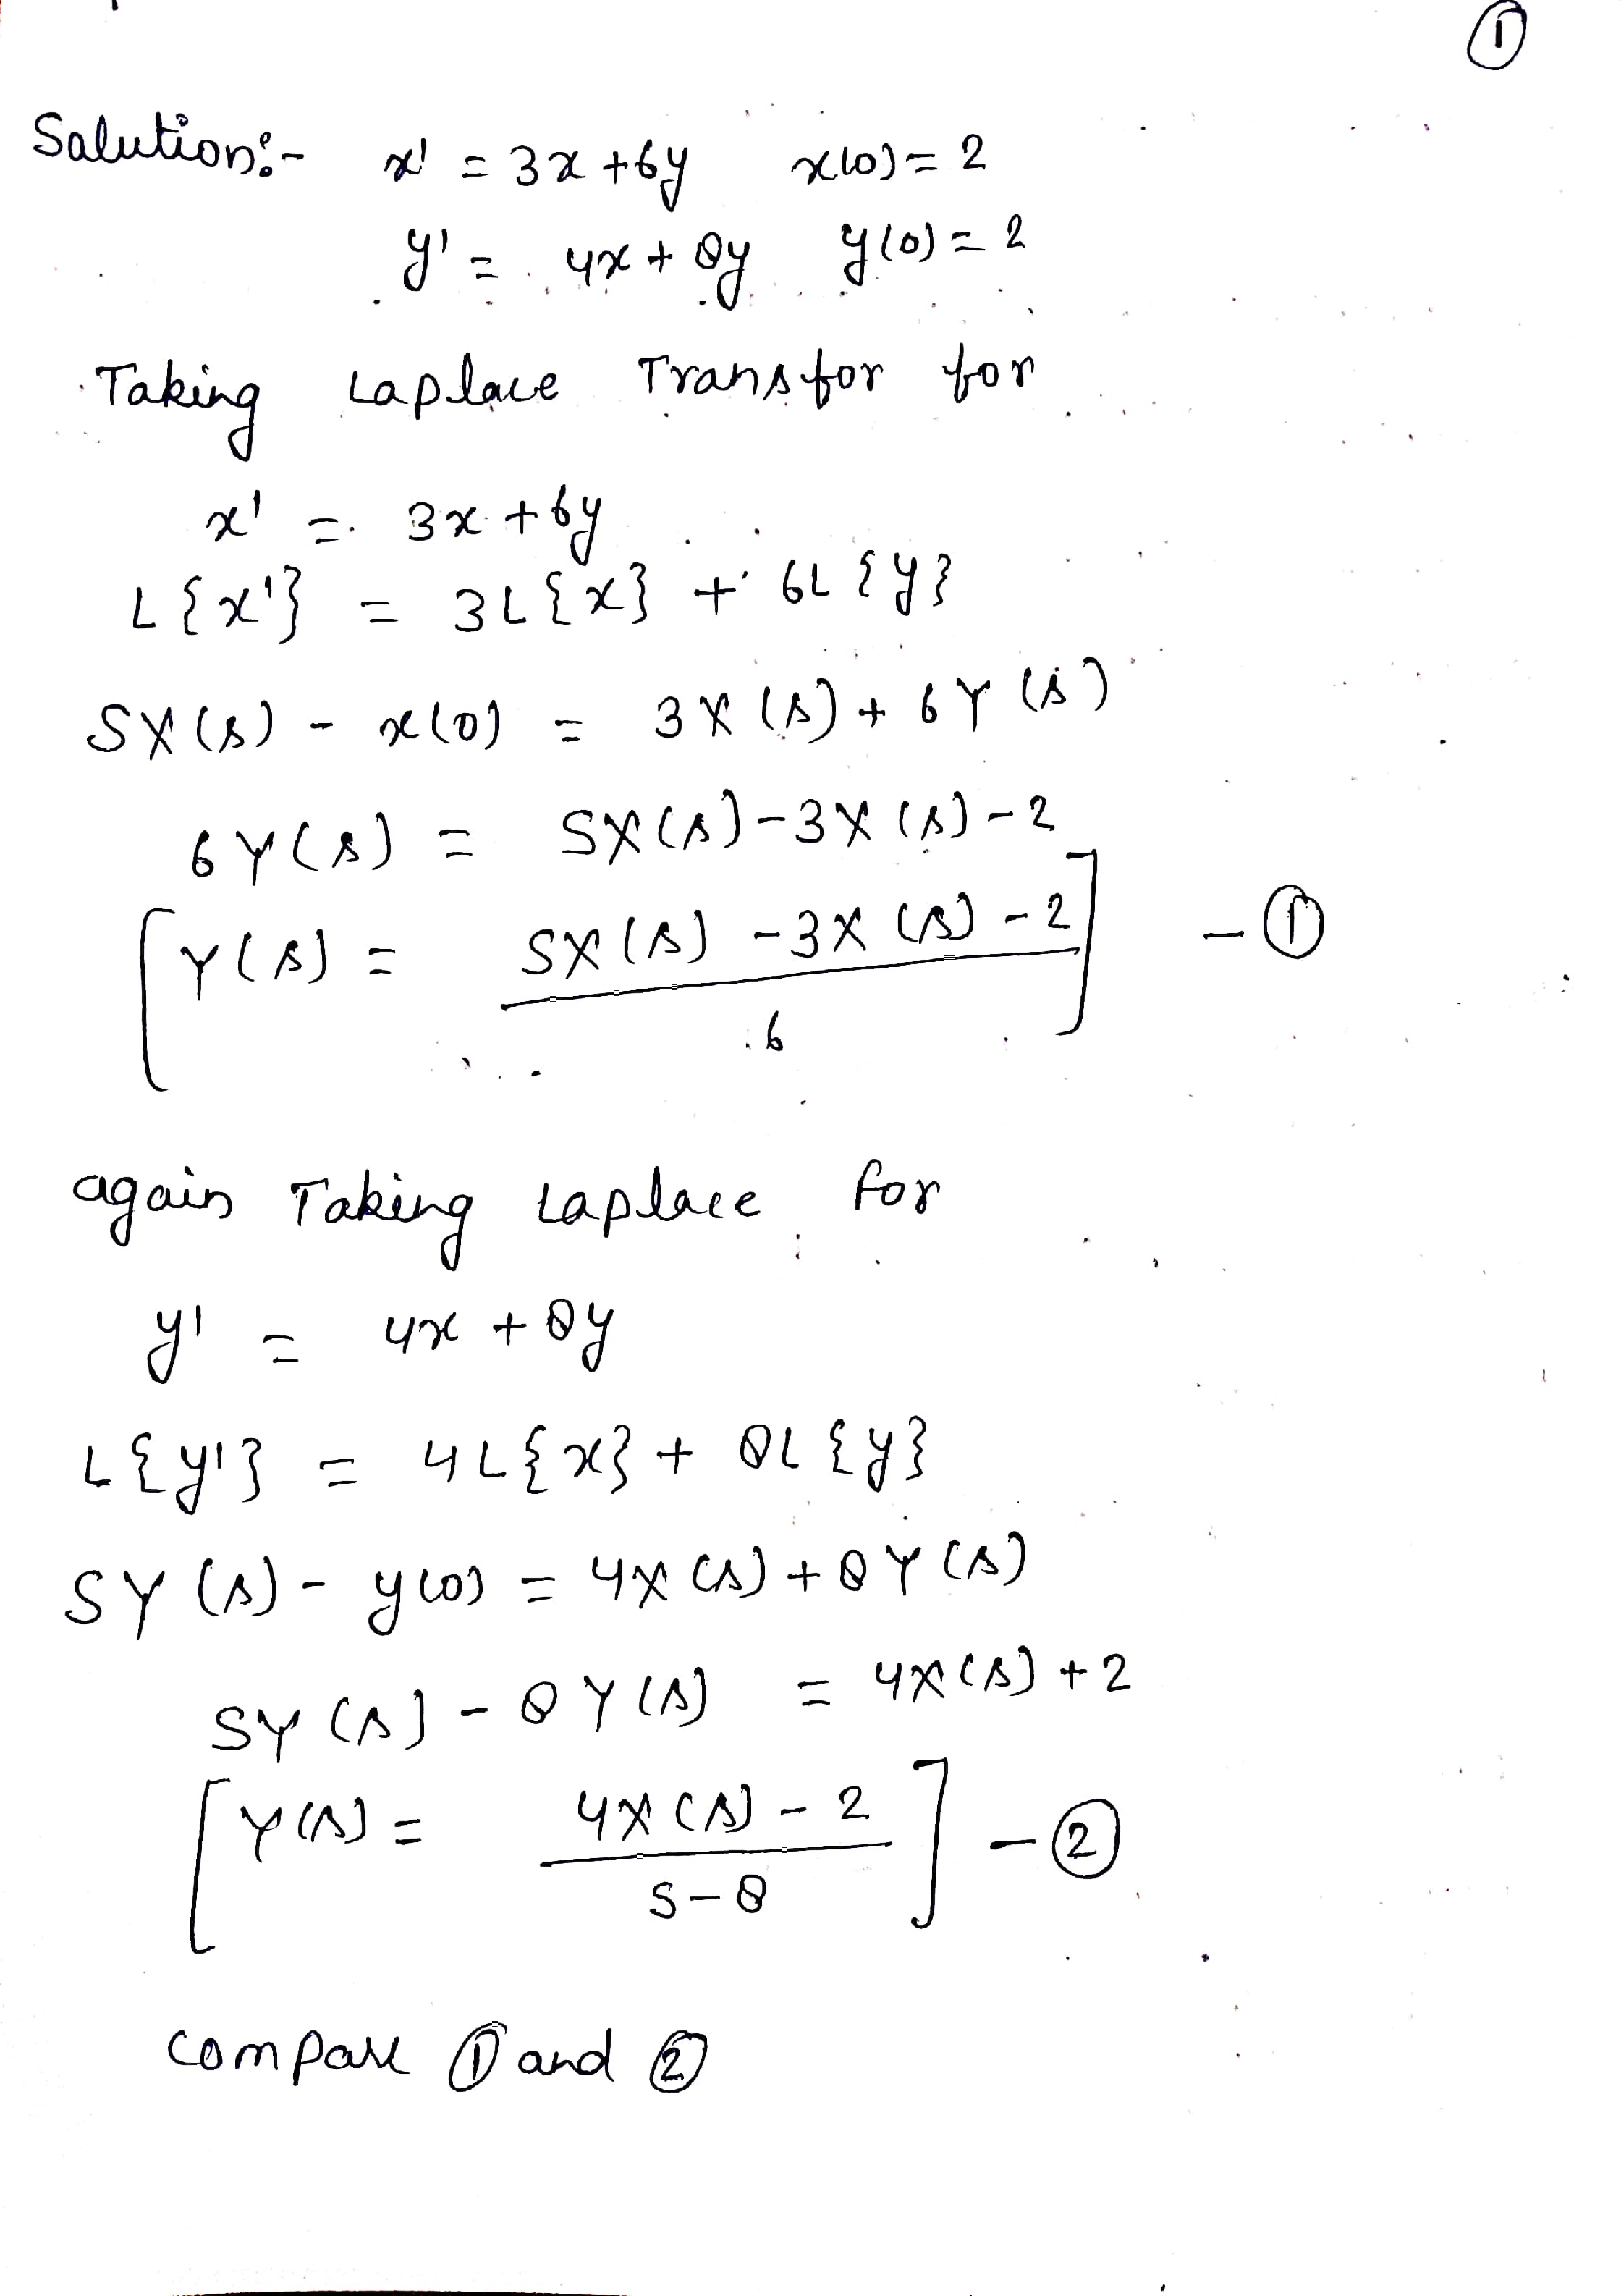 ①
Salution:- x' = 3x +6y x(0) = 2
y' = 4x + 8y y(0) = 2
Taking Laplace Transfor for
x' = 3x + 6y
L{x'} = 3L{x} + 6L{y}
SX(s) - x(0) = 3X(s) + 6Y(s)
6Y(s) = SX(s) - 3X(s) - 2
[Y(s) = SX(s) - 3X(s) - 2] - ①
6
again Taking Laplace for
y' = 4x + 8y
L{y'} = 4L{x} + 8L{y}
SY(s) - y(0) = 4X(s) + 8Y(s)
SY(s) - 8Y(s) = 4X(s) + 2
[Y(s) = 4X(s) - 2] - ②
S-8
compare ① and ②